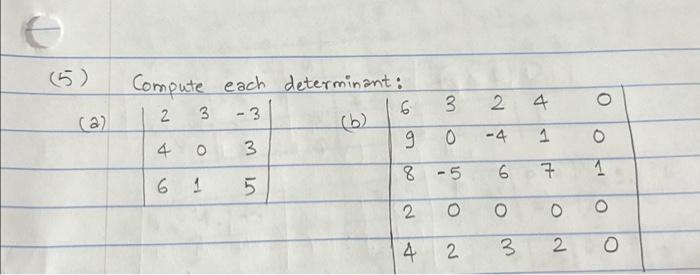 (5) Compute each determinant:
(a) | 2 3 -3 | (b) | 6 3 2 4 0 |
| 4 0 3 | | 9 0 -4 1 0 |
| 6 1 5 | | 8 -5 6 7 1 |
| 2 0 0 0 0 |
| 4 2 3 2 0 |